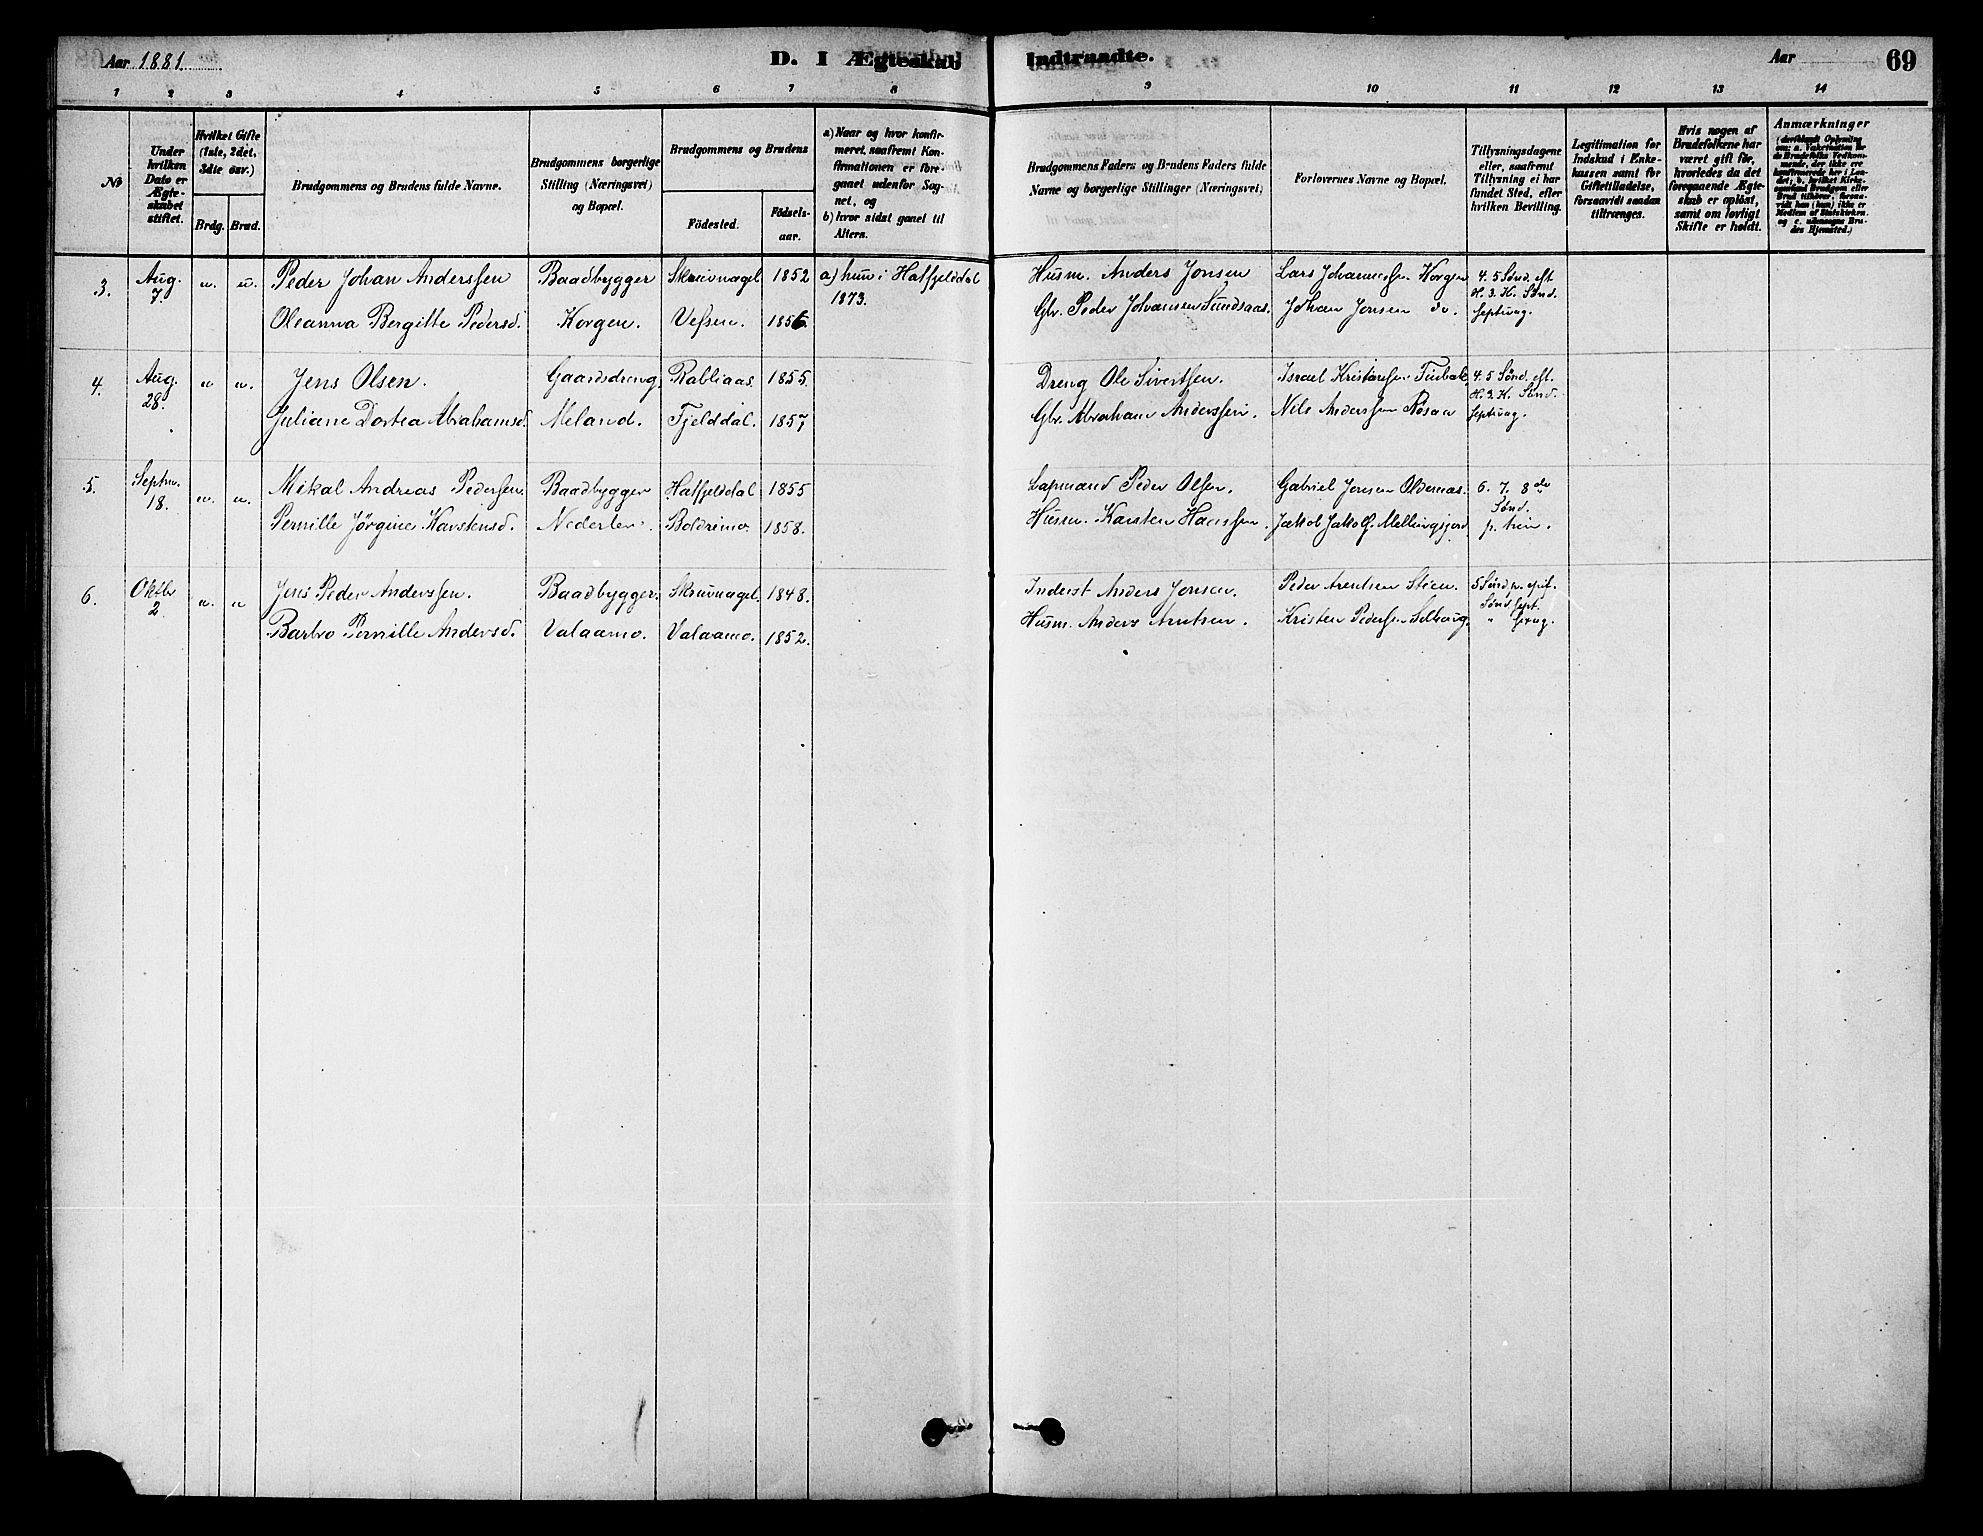 Aar 1881.
D. I Ægteskab Indtraadte.
Aar
69
1 2 3 4 5 6 7 8 9 10 11 12 13 14
No
Under hvilken Dato er Ægteskabet stiftet.
Hvilket Gifte (1ste, 2det, 3die osv.)
Brdg. Brud.
Brudgommens og Brudens fulde Navne.
Brudgommens borgerlige Stilling (Næringsvei) og Bopæl.
Brudgommens og Brudens
Födested.
Födselsaar.
a) Naar og hvor konfirmeret, saafremt Konfirmationen er foregaaet udenfor Sognet, og
b) hvor sidst gaaet til Altern.
Brudgommens Faders og Brudens Faders fulde Navne og borgerlige Stillinger (Næringsvei)
Forlovernes Navne og Bopæl.
Tillysningsdagene eller, saafremt Tillysning ei har fundet Sted, efter hvilken Bevilling.
Legitimation for Indskud i Enkekassen samt for Giftetilladelse, forsaavidt saadan tiltrænges.
Hvis nogen af Brudefolkene har været gift för, hvorledes da det foregaaende Ægteskab er oplöst, samt om lovligt Skifte er holdt.
Anmærkninger
3. Aug. 7. u. u. Peder Johan Anderssen Baadbygger Skruvnagel 1852 a) hun i Hatfjelddal 1873. Husm. Anders Jonsen Lars Johannessen Korgen 4. 5 Sønd. eft. H. 3. K. Sønd. septuag.
Oleanna Bergitte Pedersd. Korgen. Vefsen. 1856 Gbr. Peder Johansen Sundsaas. Johan Jonsen do.
4. Aug. 28. u u. Jens Olsen. Gaardsdreng Rabliaas. 1855. Dreng Ole Sivertsen. Israel Kristensen 4. 5 Sønd. eft. H. 3. K. Sønd. septuag.
Juliane Dortea Abrahamsd. Meland. Fjelddal. 1857 Gbr. Abraham Anderssen. Nils Anderssen Røsaa
5. Septm. 18. u. u. Mikal Andreas Pedersen. Baadbygger Hatfjelddal 1855 Lapmand Peder Olsen. Gabriel Jonsen Oldernæs. 6. 7. 8de Sønd. p. trin.
Pernille Jørgine Karstensd. Nederler. Boldrimo. 1858. Husm. Karsten Hanssen. Jakob Jakobs.
6. Oktbr 2 u. u Jens Peder Anderssen. Baadbygger. Skruvnagel. 1848. Inderst Anders Jonsen. Peder Arentsen Steen. 5 Sønd p. epif. Sønd sept. " sexag.
Barbro Pernille Andersd. Valaamo. Valaamo. 1852. Husm. Anders Arntsen. Kristen Pedersen Selhaug.